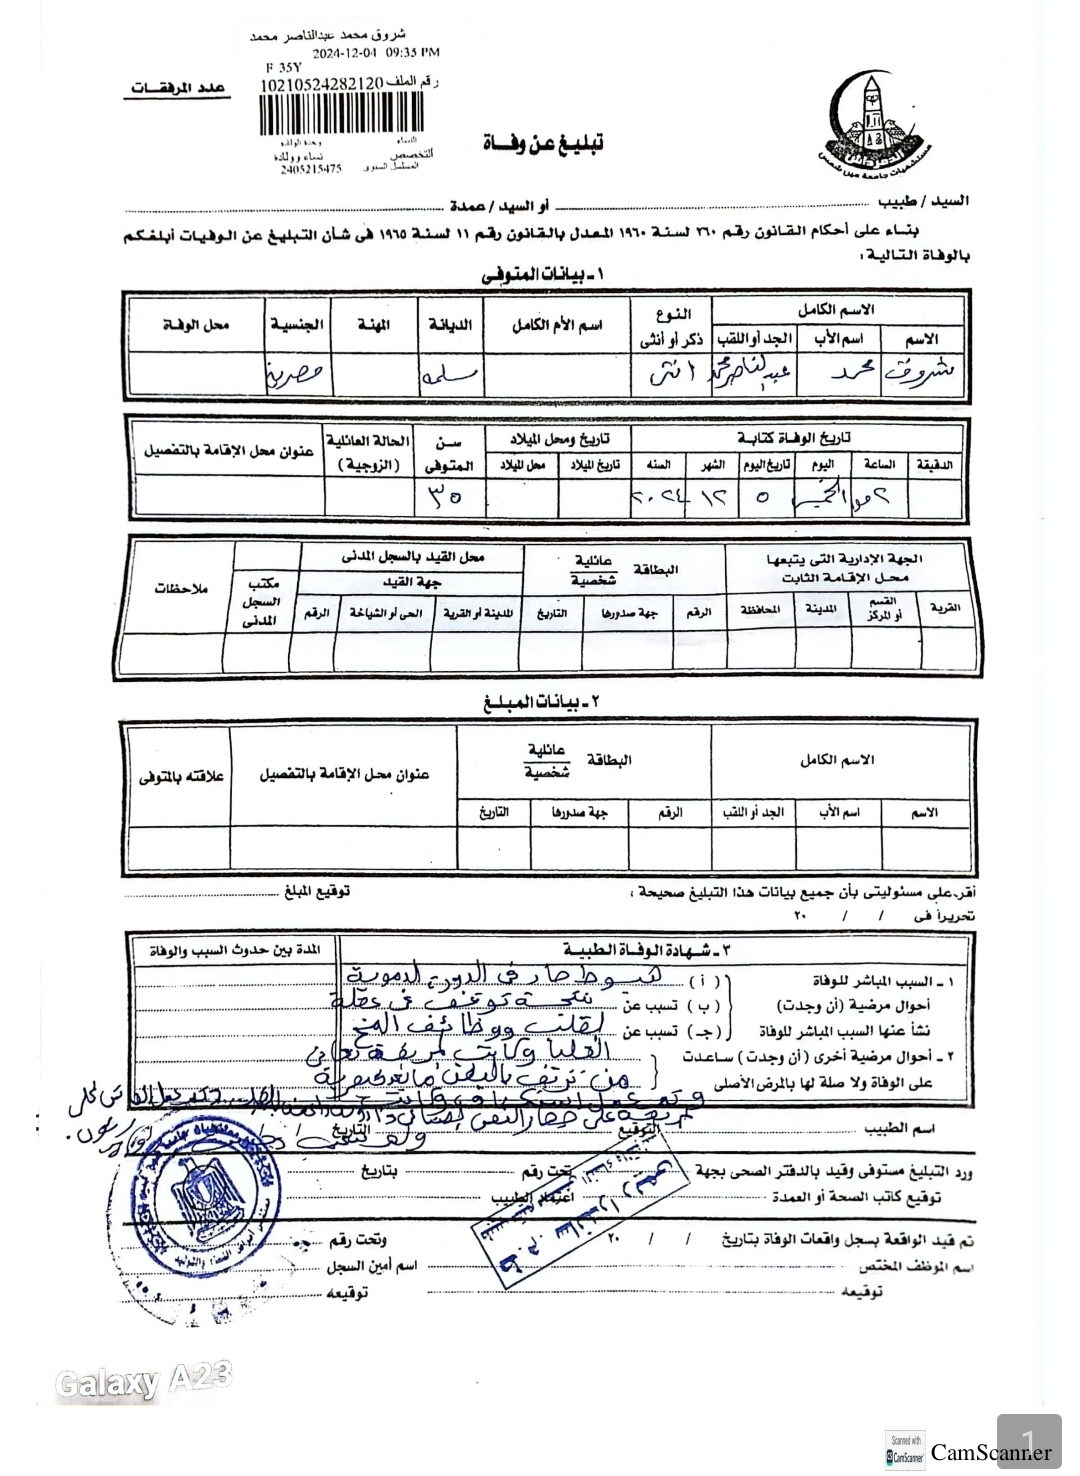 شروق محمد عبدالناصر محمد
2024-12-04 09:35 PM
F 35Y
رقم الملف 10210524282120
النساء
وحدة الولادة
التخصص نساء وولادة
المسلسل السنوى 2405215475
عدد المرفقات
تبليغ عن وفاة
مستشفيات جامعة عين شمس
السيد / طبيب أو السيد / عمدة
بناء على أحكام القانون رقم ٢٦٠ لسنة ١٩٦٠ المعدل بالقانون رقم ١١ لسنة ١٩٦٥ فى شأن التبليغ عن الوفيات أبلغكم
بالوفاة التالية :
١ ـ بيانات المتوفى
الاسم الكامل النوع ذكر أو أنثى اسم الأم الكامل الديانة المهنة الجنسية محل الوفاة
الاسم اسم الأب الجد أو اللقب
شروق محمد عبد الناصر محمد انثى مسلمه مصرية
تاريخ الوفاة كتابة تاريخ ومحل الميلاد سن المتوفى الحالة العائلية (الزوجية) عنوان محل الإقامة بالتفصيل
الدقيقة الساعة اليوم تاريخ اليوم الشهر السنه تاريخ الميلاد محل الميلاد
٢ الخميس ٥ ١٢ ٢٠٢٤ ٣٥
الجهة الإدارية التى يتبعها محل الإقامة الثابت البطاقة عائلية شخصية محل القيد بالسجل المدنى ملاحظات
جهة القيد مكتب السجل المدنى
القرية القسم أو المركز المدينة المحافظة الرقم جهة صدورها التاريخ المدينة أو القرية الحى أو الشياخة الرقم
٢ ـ بيانات المبلغ
الاسم الكامل البطاقة عائلية شخصية عنوان محل الإقامة بالتفصيل علاقته بالمتوفى
الاسم اسم الأب الجد أو اللقب الرقم جهة صدورها التاريخ
أقر على مسئوليتى بأن جميع بيانات هذا التبليغ صحيحة ، توقيع المبلغ
تحريراً فى / / ٢٠
٣ ـ شهادة الوفاة الطبية المدة بين حدوث السبب والوفاة
١ ـ السبب المباشر للوفاة ( أ ) هبوط حاد فى الدورة الدموية
أحوال مرضية (أن وجدت) ( ب ) تسبب عن نتيجة توقف فى عضلة
نشأ عنها السبب المباشر للوفاة ( جـ ) تسبب عن القلب ووظائف المخ
٢ ـ أحوال مرضية أخرى (أن وجدت) ساعدت العليا وكانت المريضة تعانى
على الوفاة ولا صلة لها بالمرض الأصلى من نزيف بالبطن
اسم الطبيب التوقيع التاريخ
ورد التبليغ مستوفى وقيد بالدفتر الصحى بجهة تحت رقم بتاريخ
توقيع كاتب الصحة أو العمدة اعتماد الطبيب
تم قيد الواقعة بسجل واقعات الوفاة بتاريخ / / ٢٠ وتحت رقم
اسم الموظف المختص اسم أمين السجل
توقيعه توقيعه
Galaxy A23
1
Scanned with
CamScanner
CamScanner